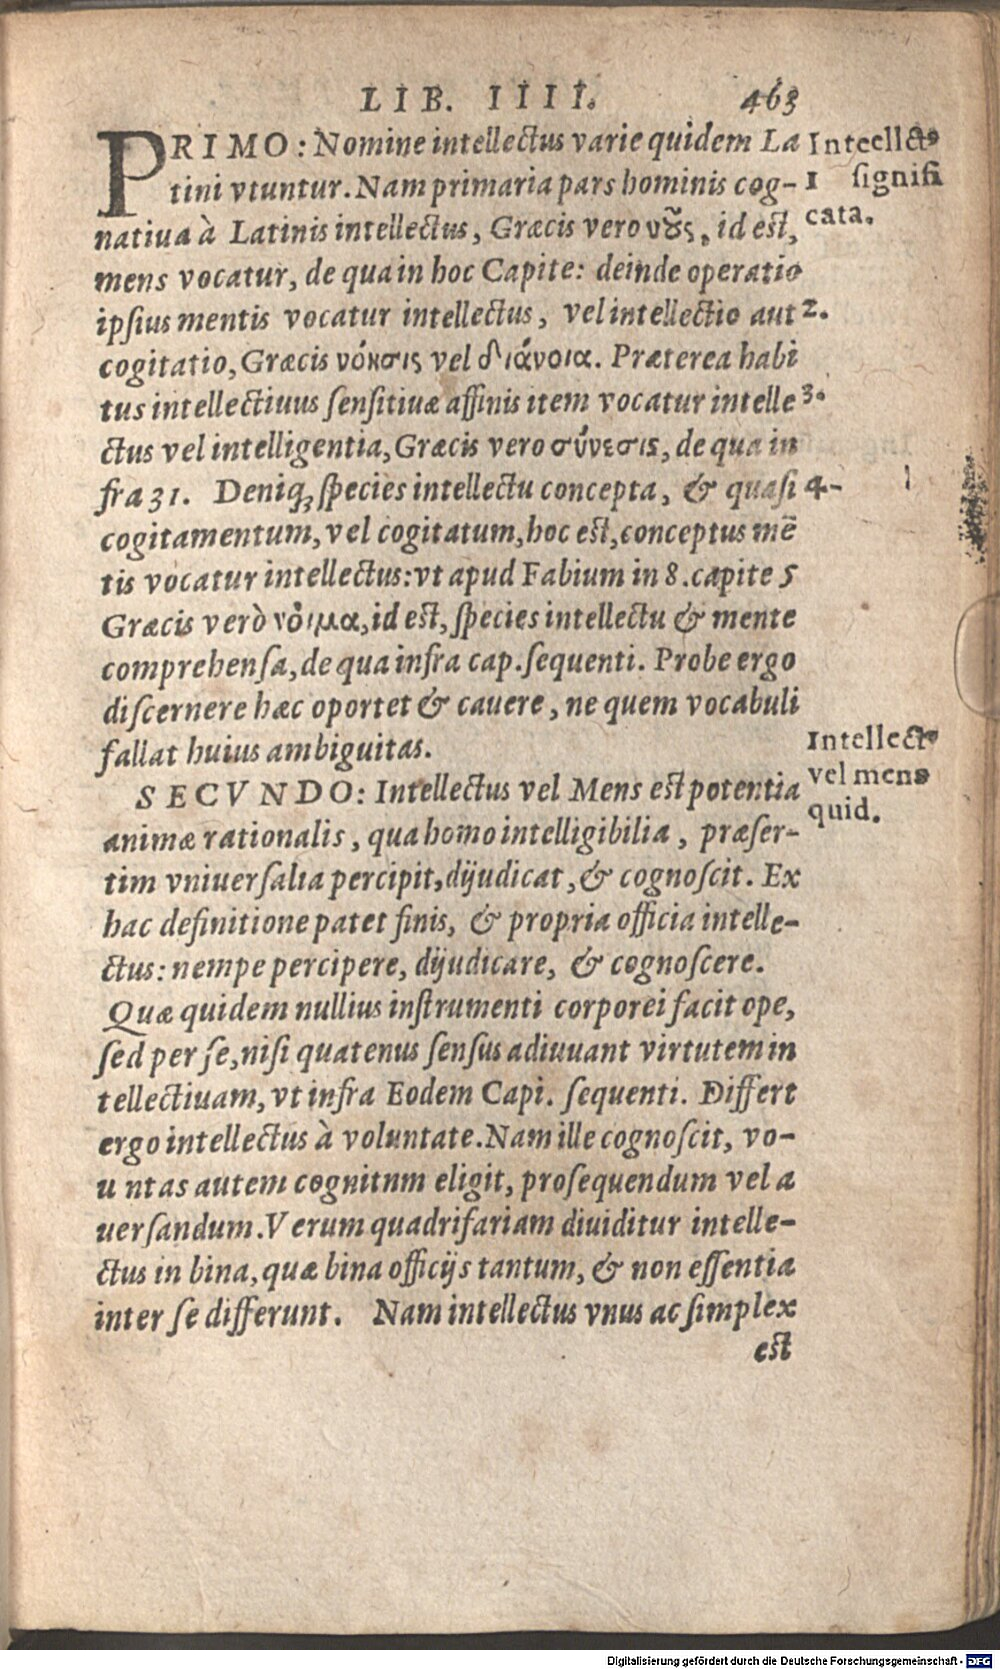 LIB. IIII. 463
PRIMO: Nomine intellectus varie quidem La
tini vtuntur. Nam primaria pars hominis cog-
natiua à Latinis intellectus, Græcis vero νο῀υς, id est,
mens vocatur, de qua in hoc Capite: deinde operatio
ipsius mentis vocatur intellectus, vel intellectio aut
cogitatio, Græcis νόησις vel διάνοια. Præterea habi
tus intellectiuus sensitiuæ affinis item vocatur intelle
ctus vel intelligentia, Græcis vero σύνεσις, de qua in
fra 31. Deniq; species intellectu concepta, & quasi
cogitamentum, vel cogitatum, hoc est, conceptus mē
tis vocatur intellectus: vt apud Fabium in 8. capite 5
Græcis verò νόιμα, id est, species intellectu & mente
comprehensa, de qua infra cap. sequenti. Probe ergo
discernere hæc oportet & cauere, ne quem vocabuli
fallat huius ambiguitas.
SECVNDO: Intellectus vel Mens est potentia
animæ rationalis, qua homo intelligibilia, præser-
tim vniuersalia percipit, dijudicat, & cognoscit. Ex
hac definitione patet finis, & propria officia intelle-
ctus: nempe percipere, dijudicare, & cognoscere.
Quæ quidem nullius instrumenti corporei facit ope,
sed per se, nisi quatenus sensus adiuuant virtutem in
tellectiuam, vt infra Eodem Capi. sequenti. Differt
ergo intellectus à voluntate. Nam ille cognoscit, vo-
u ntas autem cognitnm eligit, prosequendum vel a
uersandum. Verum quadrifariam diuiditur intelle-
ctus in bina, quæ bina officijs tantum, & non essentia
inter se differunt. Nam intellectus vnus ac simplex
est
Inteellctꝰ
1 signifi
cata.
2.
3.
4-
Intellectꝰ
vel mens
quid.
Digitalisierung gefördert durch die Deutsche Forschungsgemeinschaft - DFG